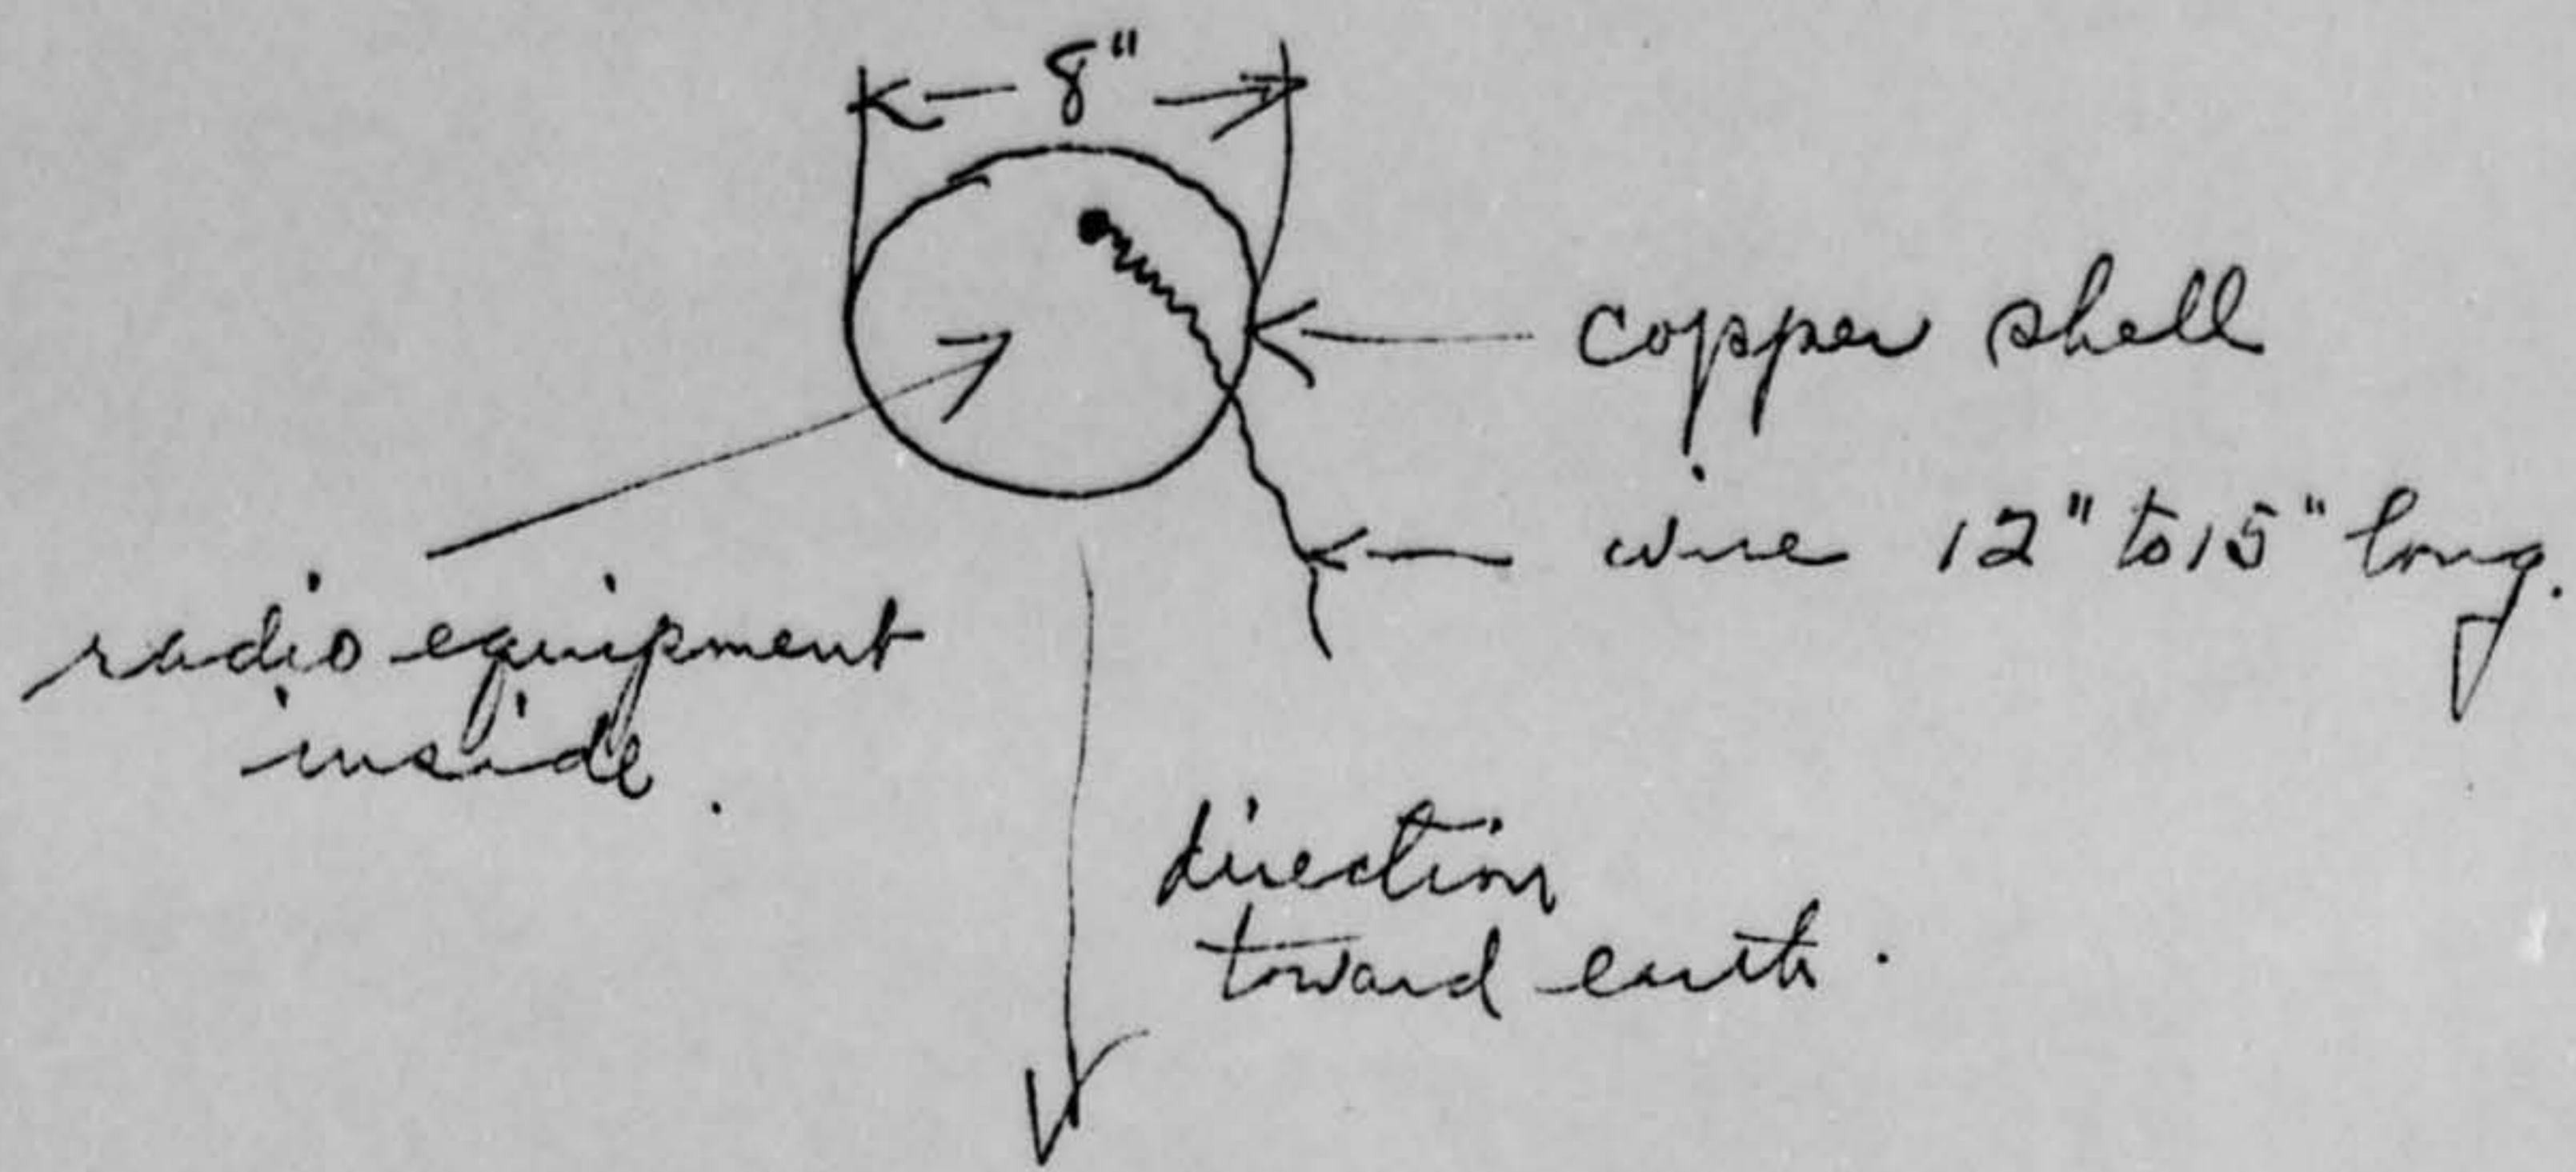 8"
copper shell
wire 12" to 15" long.
radio equipment
inside.
direction
toward earth.